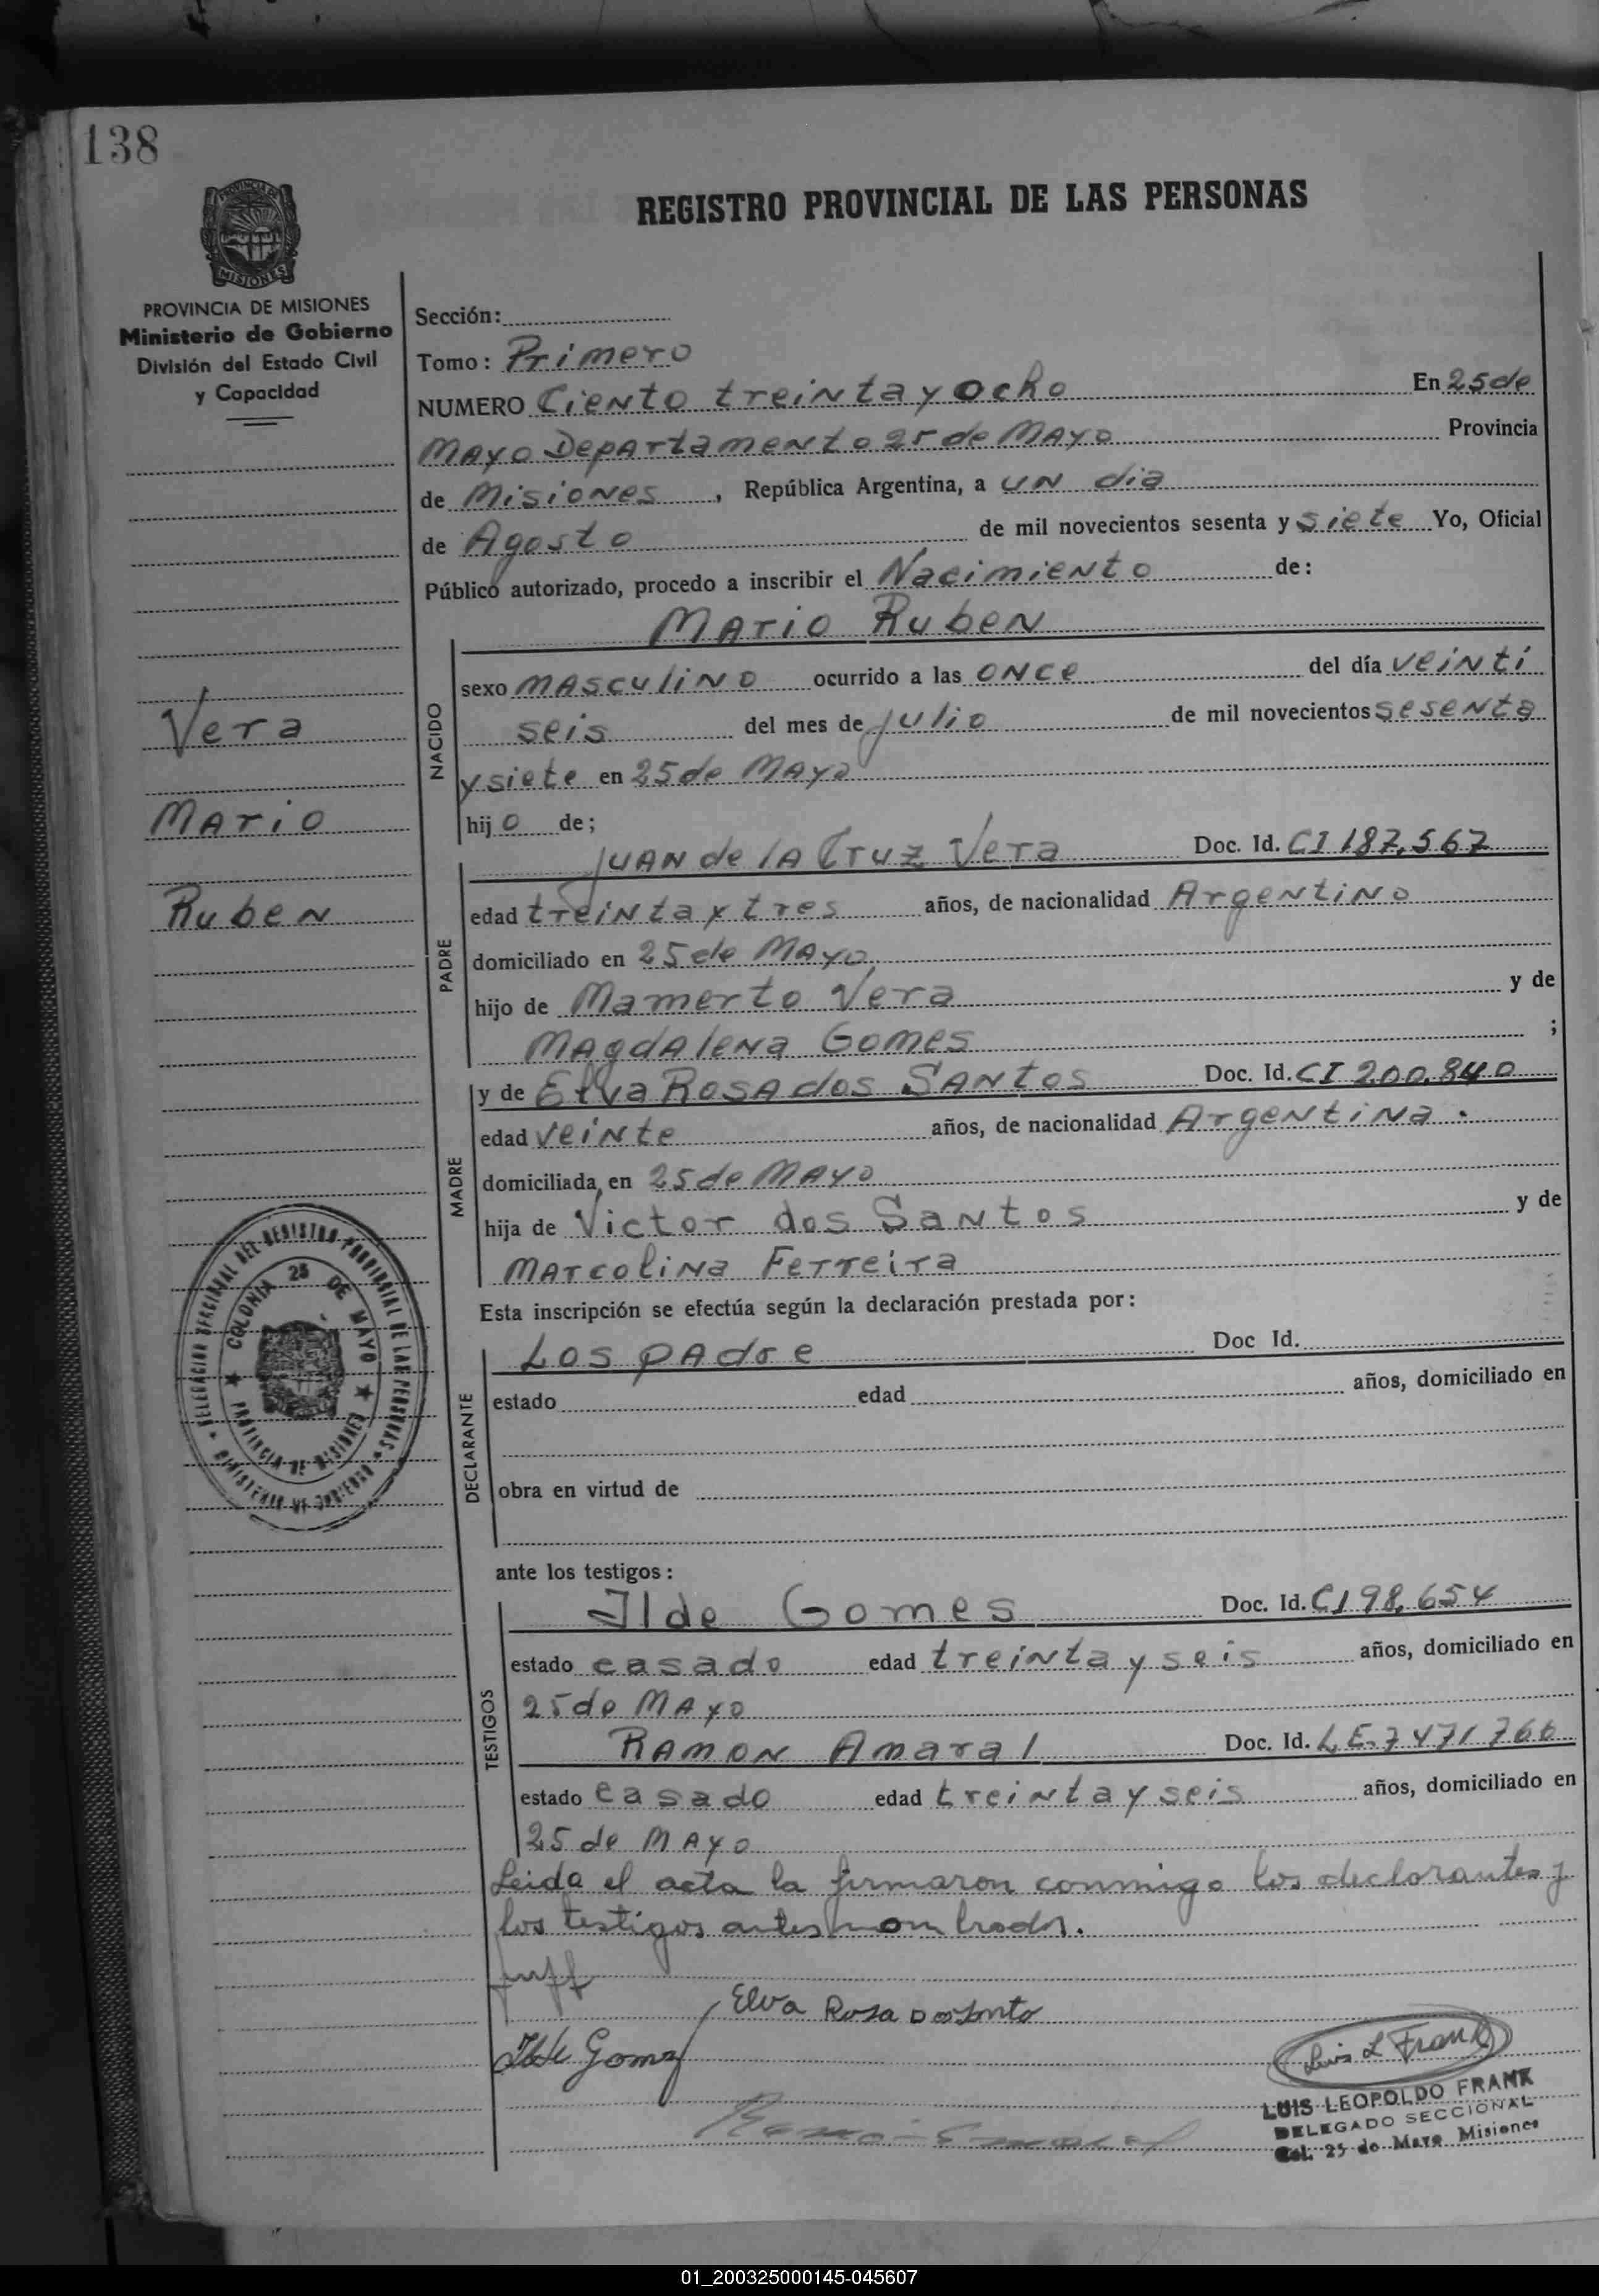 138
REGISTRO PROVINCIAL DE LAS PERSONAS
PROVINCIA DE MISIONES
MISIONES
PROVINCIA DE MISIONES
Ministerio de Gobierno
División del Estado Civil
y Capacidad
Vera
Mario
Ruben
DELEGACION SECCIONAL DEL REGISTRO PROVINCIAL DE LAS PERSONAS
MINISTERIO DE GOBIERNO
COLONIA 25 DE MAYO
PROVINCIA DE MISIONES
Sección:
Tomo: Primero
NUMERO Ciento treinta y ocho En 25 de
Mayo Departamento 25 de Mayo Provincia
de Misiones, República Argentina, a un dia
de Agosto de mil novecientos sesenta y siete Yo, Oficial
Público autorizado, procedo a inscribir el Nacimiento de:
Mario Ruben
NACIDO
sexo masculino ocurrido a las once del día veinti
seis del mes de julio de mil novecientos sesenta
y siete en 25 de Mayo
hijo de;
PADRE
Juan de la Cruz Vera Doc. Id. CI 187.567
edad treinta y tres años, de nacionalidad Argentino
domiciliado en 25 de Mayo
hijo de Mamerto Vera y de
Magdalena Gomes ;
MADRE
y de Elva Rosa dos Santos Doc. Id. CI 200.840
edad veinte años, de nacionalidad Argentina.
domiciliada en 25 de Mayo
hija de Victor dos Santos y de
Marcolina Ferreira
Esta inscripción se efectúa según la declaración prestada por:
DECLARANTE
Los padre Doc Id.
estado edad años, domiciliado en
obra en virtud de
ante los testigos:
TESTIGOS
Ilde Gomes Doc. Id. CI 98.654
estado casado edad treinta y seis años, domiciliado en
25 de Mayo
Ramon Amaral Doc. Id. LE.7471766
estado casado edad treinta y seis años, domiciliado en
25 de Mayo
Leida el acta la firmaron conmigo los declarantes y
los testigos antes nombrados.
Elva Rosa Dos Santo
Ilde Gomez
Luis L Frank
LUIS LEOPOLDO FRANK
DELEGADO SECCIONAL
Col. 25 de Mayo Misiones
01_200325000145-045607